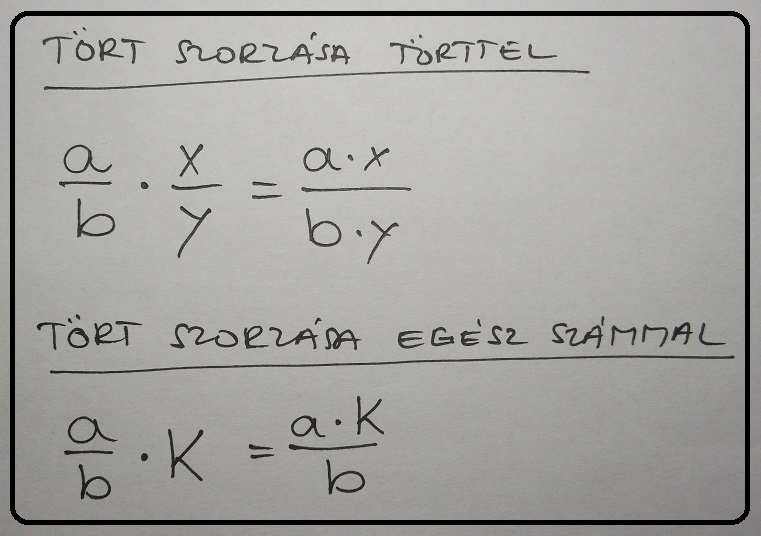 TÖRT SZORZÁSA TÖRTTEL
a/b · x/y = a·x/b·y
TÖRT SZORZÁSA EGÉSZ SZÁMMAL
a/b · K = a·K/b